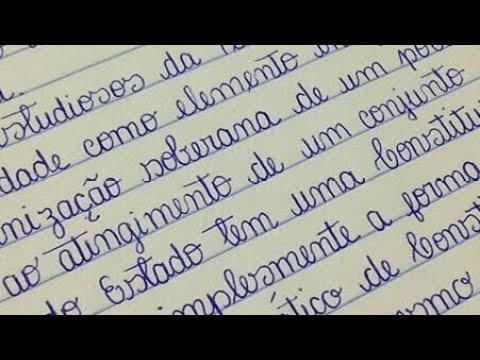 estudiosos da
idade como elemento
nização soberana de um
ao atingimento de um conjunto
do Estado tem uma Constitu
implesmente a forma
ático de Const